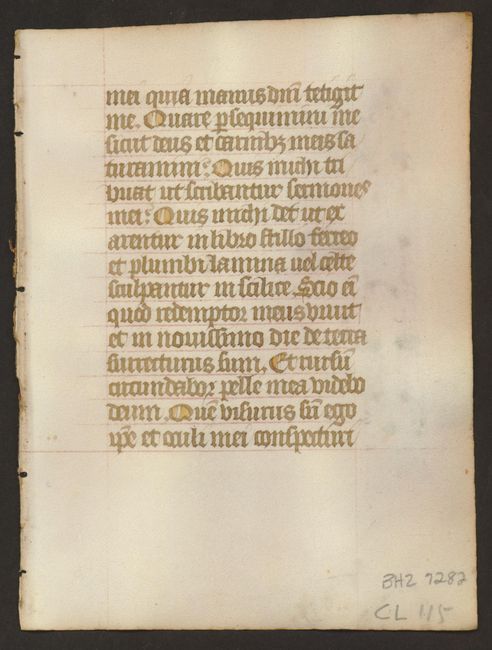 mei quia manus dñi tetigit
me. Quare ꝑsequimini me
sicut deus et carnibꝫ meis sa
turamini: Quis michi tri
buat ut scribantur sermones
mei: Quis michi det ut ex
arentur in libro stillo ferreo
et plumbi lamina uel celte
sculpantur in scilice. Scio eī
quod redemptor meus viuit
et in nouissimo die de terra
surrecturus sum. Et rursū
circundabor pelle mea videbo
deum. Quē visurus sū ego
ip̄e et oculi mei conspecturi
BHZ 7282
CL 115